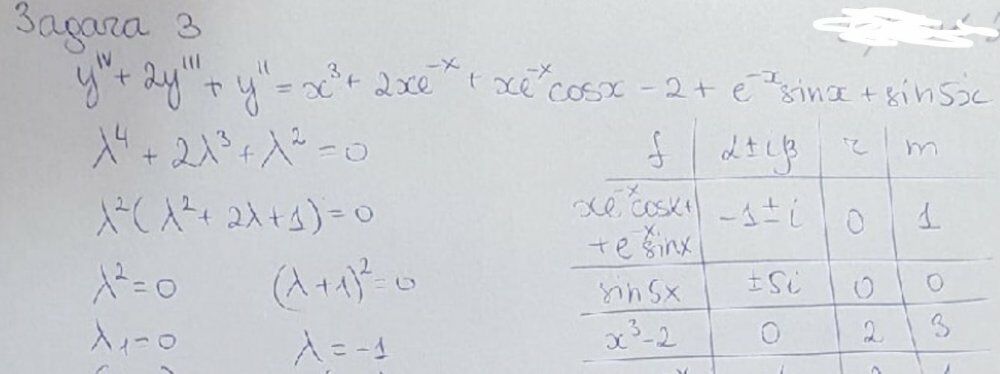 Задача 3
y'ᵛ + 2y''' + y'' = x³ + 2xe⁻ˣ + xe⁻ˣcosx - 2 + e⁻ˣsinx + sin5x
λ⁴ + 2λ³ + λ² = 0
λ²(λ² + 2λ + 1) = 0
λ² = 0 (λ + 1)² = 0
λ₁ = 0 λ = -1
f α ± iβ r m
xe⁻ˣcosx + -1 ± i 0 1
+ e⁻ˣsinx
sin5x ±5i 0 0
x³ - 2 0 2 3